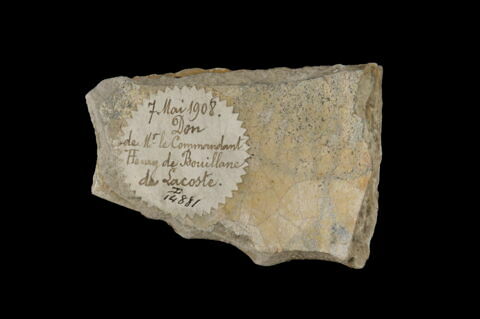 7 Mai 1908.
Don
de Mr le Commandant
Henry de Bouillane
de Lacoste.
D
14881